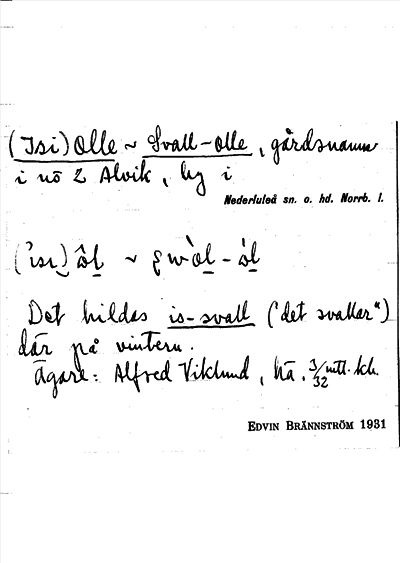 (Isi) Olle ~ Svall-Olle, gårdsnamn
i nö 2 Alvik, by i
Nederluleå sn. o. hd. Norrb. l.
Det bildas is-svall ("det svallar")
där på vintern.
Ägare: Alfred Viklund, hä. 3/32 mtl. kch.
EDVIN BRÄNNSTRÖM 1931